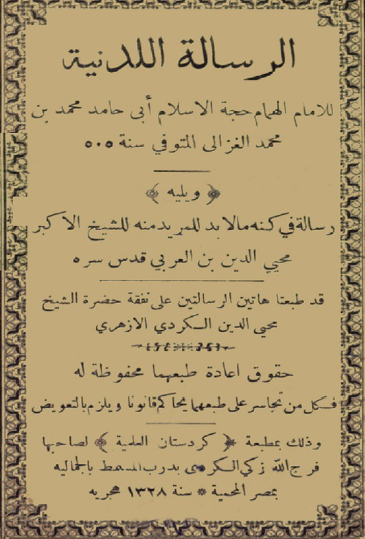 الرسالة اللدنية
للامام الهمام حجة الاسلام أبى حامد محمد بن
محمد الغزالى المتوفي سنة ٥٠٥
﴿ ويليه ﴾
رسالة في كنه مالا بد للمريد منه للشيخ الاكبر
محيي الدين بن العربي قدس سره
قد طبعتا هاتين الرسالتين على نفقة حضرة الشيخ
محيي الدين الكردي الازهري
حقوق اعادة طبعهما محفوظة له
فكل من تجاسر على طبعهما يحاكم قانونا ويلزم بالتعويض
وذلك بمطبعة ﴿ كردستان العلمية ﴾ لصاحبها
فرج الله زكي الكردي بدرب المسمط بالجمالية
بمصر المحمية * سنة ١٣٢٨ هجريه